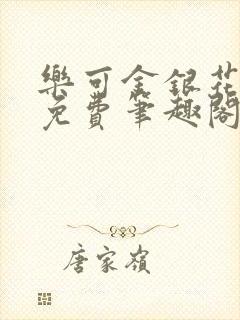 樂可金銀花
免費筆趣閣
唐家嶺